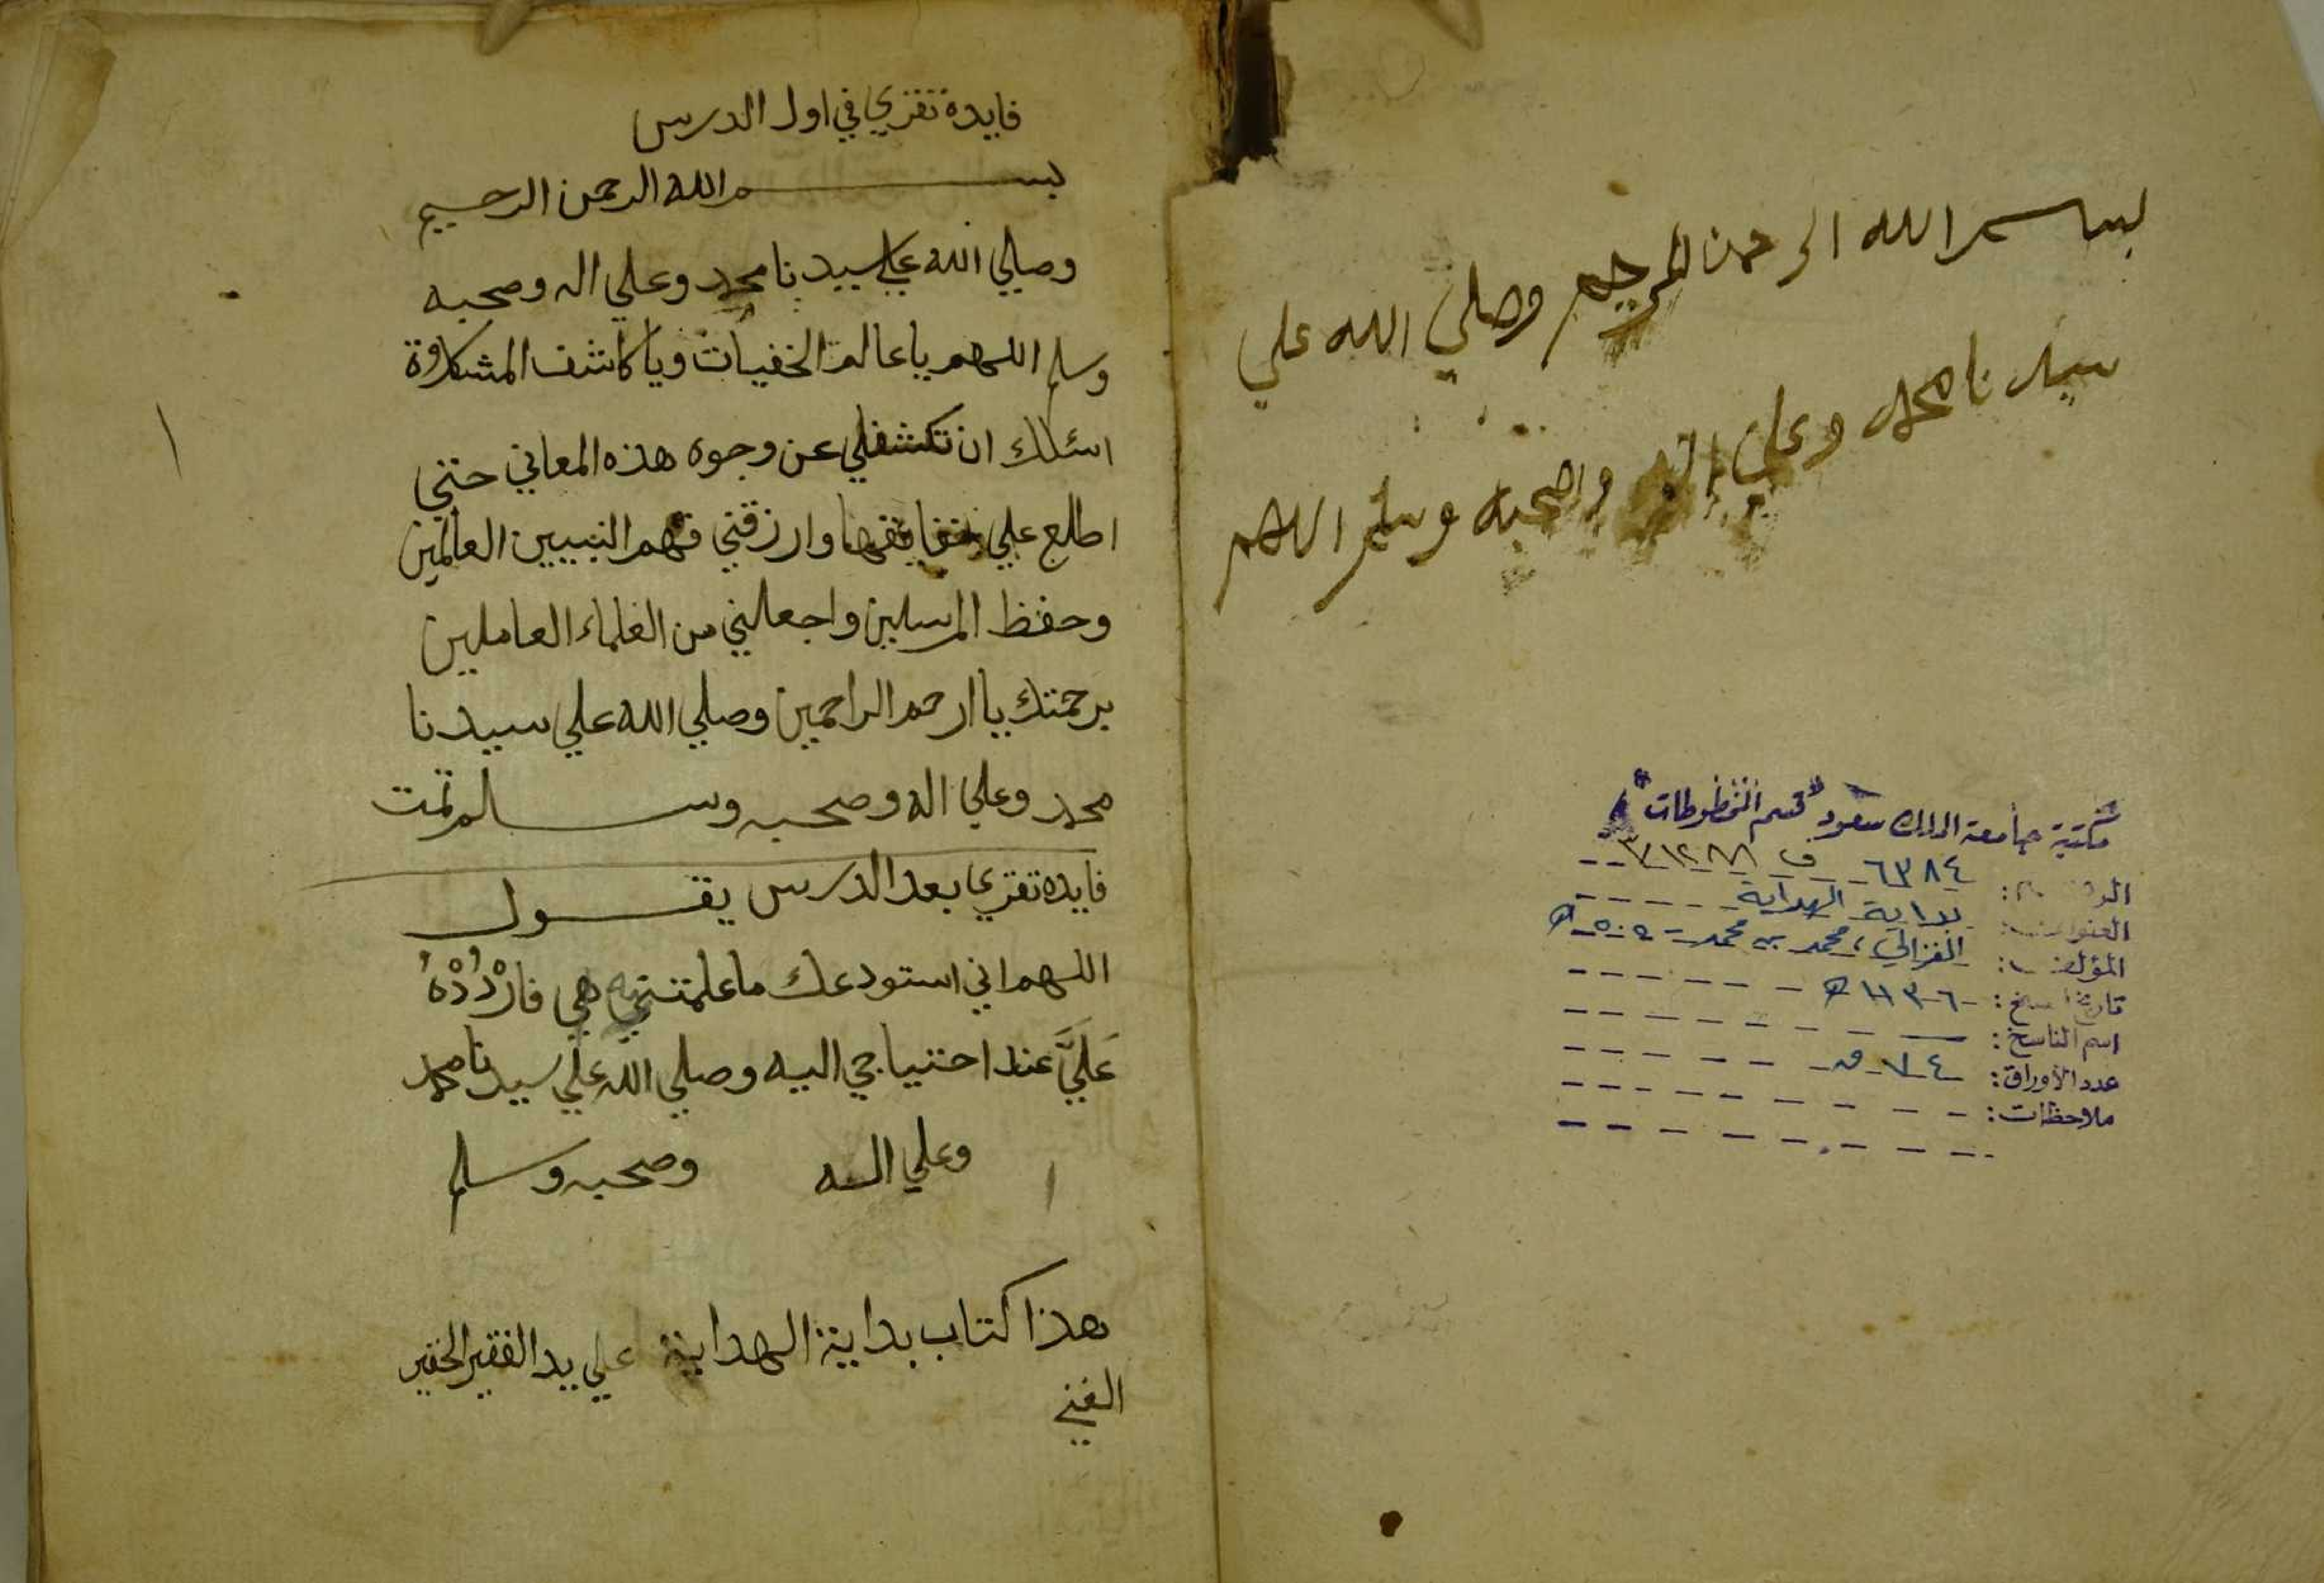 بسم الله الرحمن الرحيم وصلي الله علي
سيدنا محمد وعلي اله واصحبه وسلم اللهم
مكتبة جامعة الملك سعود "قسم المخطوطات"
الرقم: ٦٣٨٤
العنوان: بداية الهداية
المؤلف: الغزالي، محمد بن محمد - ٥٠٥ هـ
تاريخ النسخ: ١١٣٠٦ هـ
اسم الناسخ:
عدد الأوراق: ٧٤ ق
ملاحظات:
فايدة تقري في اول الدرس
بسم الله الرحمن الرحيم
وصلي الله علي سيدنا محمد وعلي اله وصحبه
وسلم اللهم يا عالم الخفيات ويا كاشف المشكلاة
اسئلك ان تكشفلي عن وجوه هذه المعاني حتي
اطلع علي حقايقها وارزقني فهم النبيين العالمين
وحفظ المرسلين واجعلني من العلماء العاملين
برحمتك يا ارحم الراحمين وصلي الله علي سيدنا
محمد وعلي اله وصحبه وسلم تمت
فايده تقري بعد الدرس يقول
اللهم اني استودعك ما علمتنيه فارْدُدْهُ
عَلَيَّ عند احتياجي اليه وصلي الله علي سيدنا محمد
وعلي اله وصحبه وسلم
هذا كتاب بداية الهداية علي يد الفقير الحقير
الغني
١